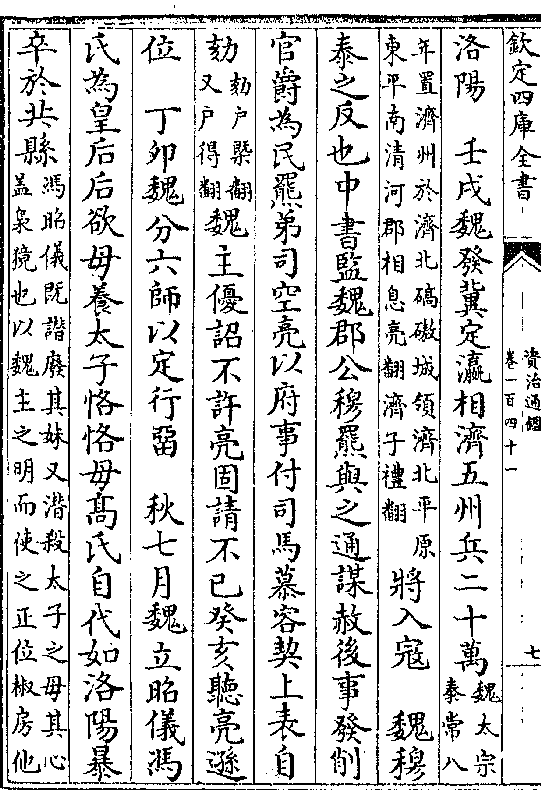 欽定四庫全書
資治通鑑
卷一百四十一
七
洛陽　壬戌魏發冀定瀛相濟五州兵二十萬魏太宗
泰常八
年置濟州於濟北碻磝城領濟北平原
東平南清河郡相息亮翻濟子禮翻將入寇　魏穆
泰之反也中書監魏郡公穆羆與之通謀赦後事發削
官爵為民羆弟司空亮以府事付司馬慕容契上表自
劾劾戶槩翻
又戶得翻魏主優詔不許亮固請不已癸亥聽亮遜
位　丁卯魏分六師以定行畱　秋七月魏立昭儀馮
氏為皇后后欲母養太子恪恪母髙氏自代如洛陽暴
卒於共縣馮昭儀既譖廢其姊又潛殺太子之母其心
葢梟獍也以魏主之明而使之正位椒房他